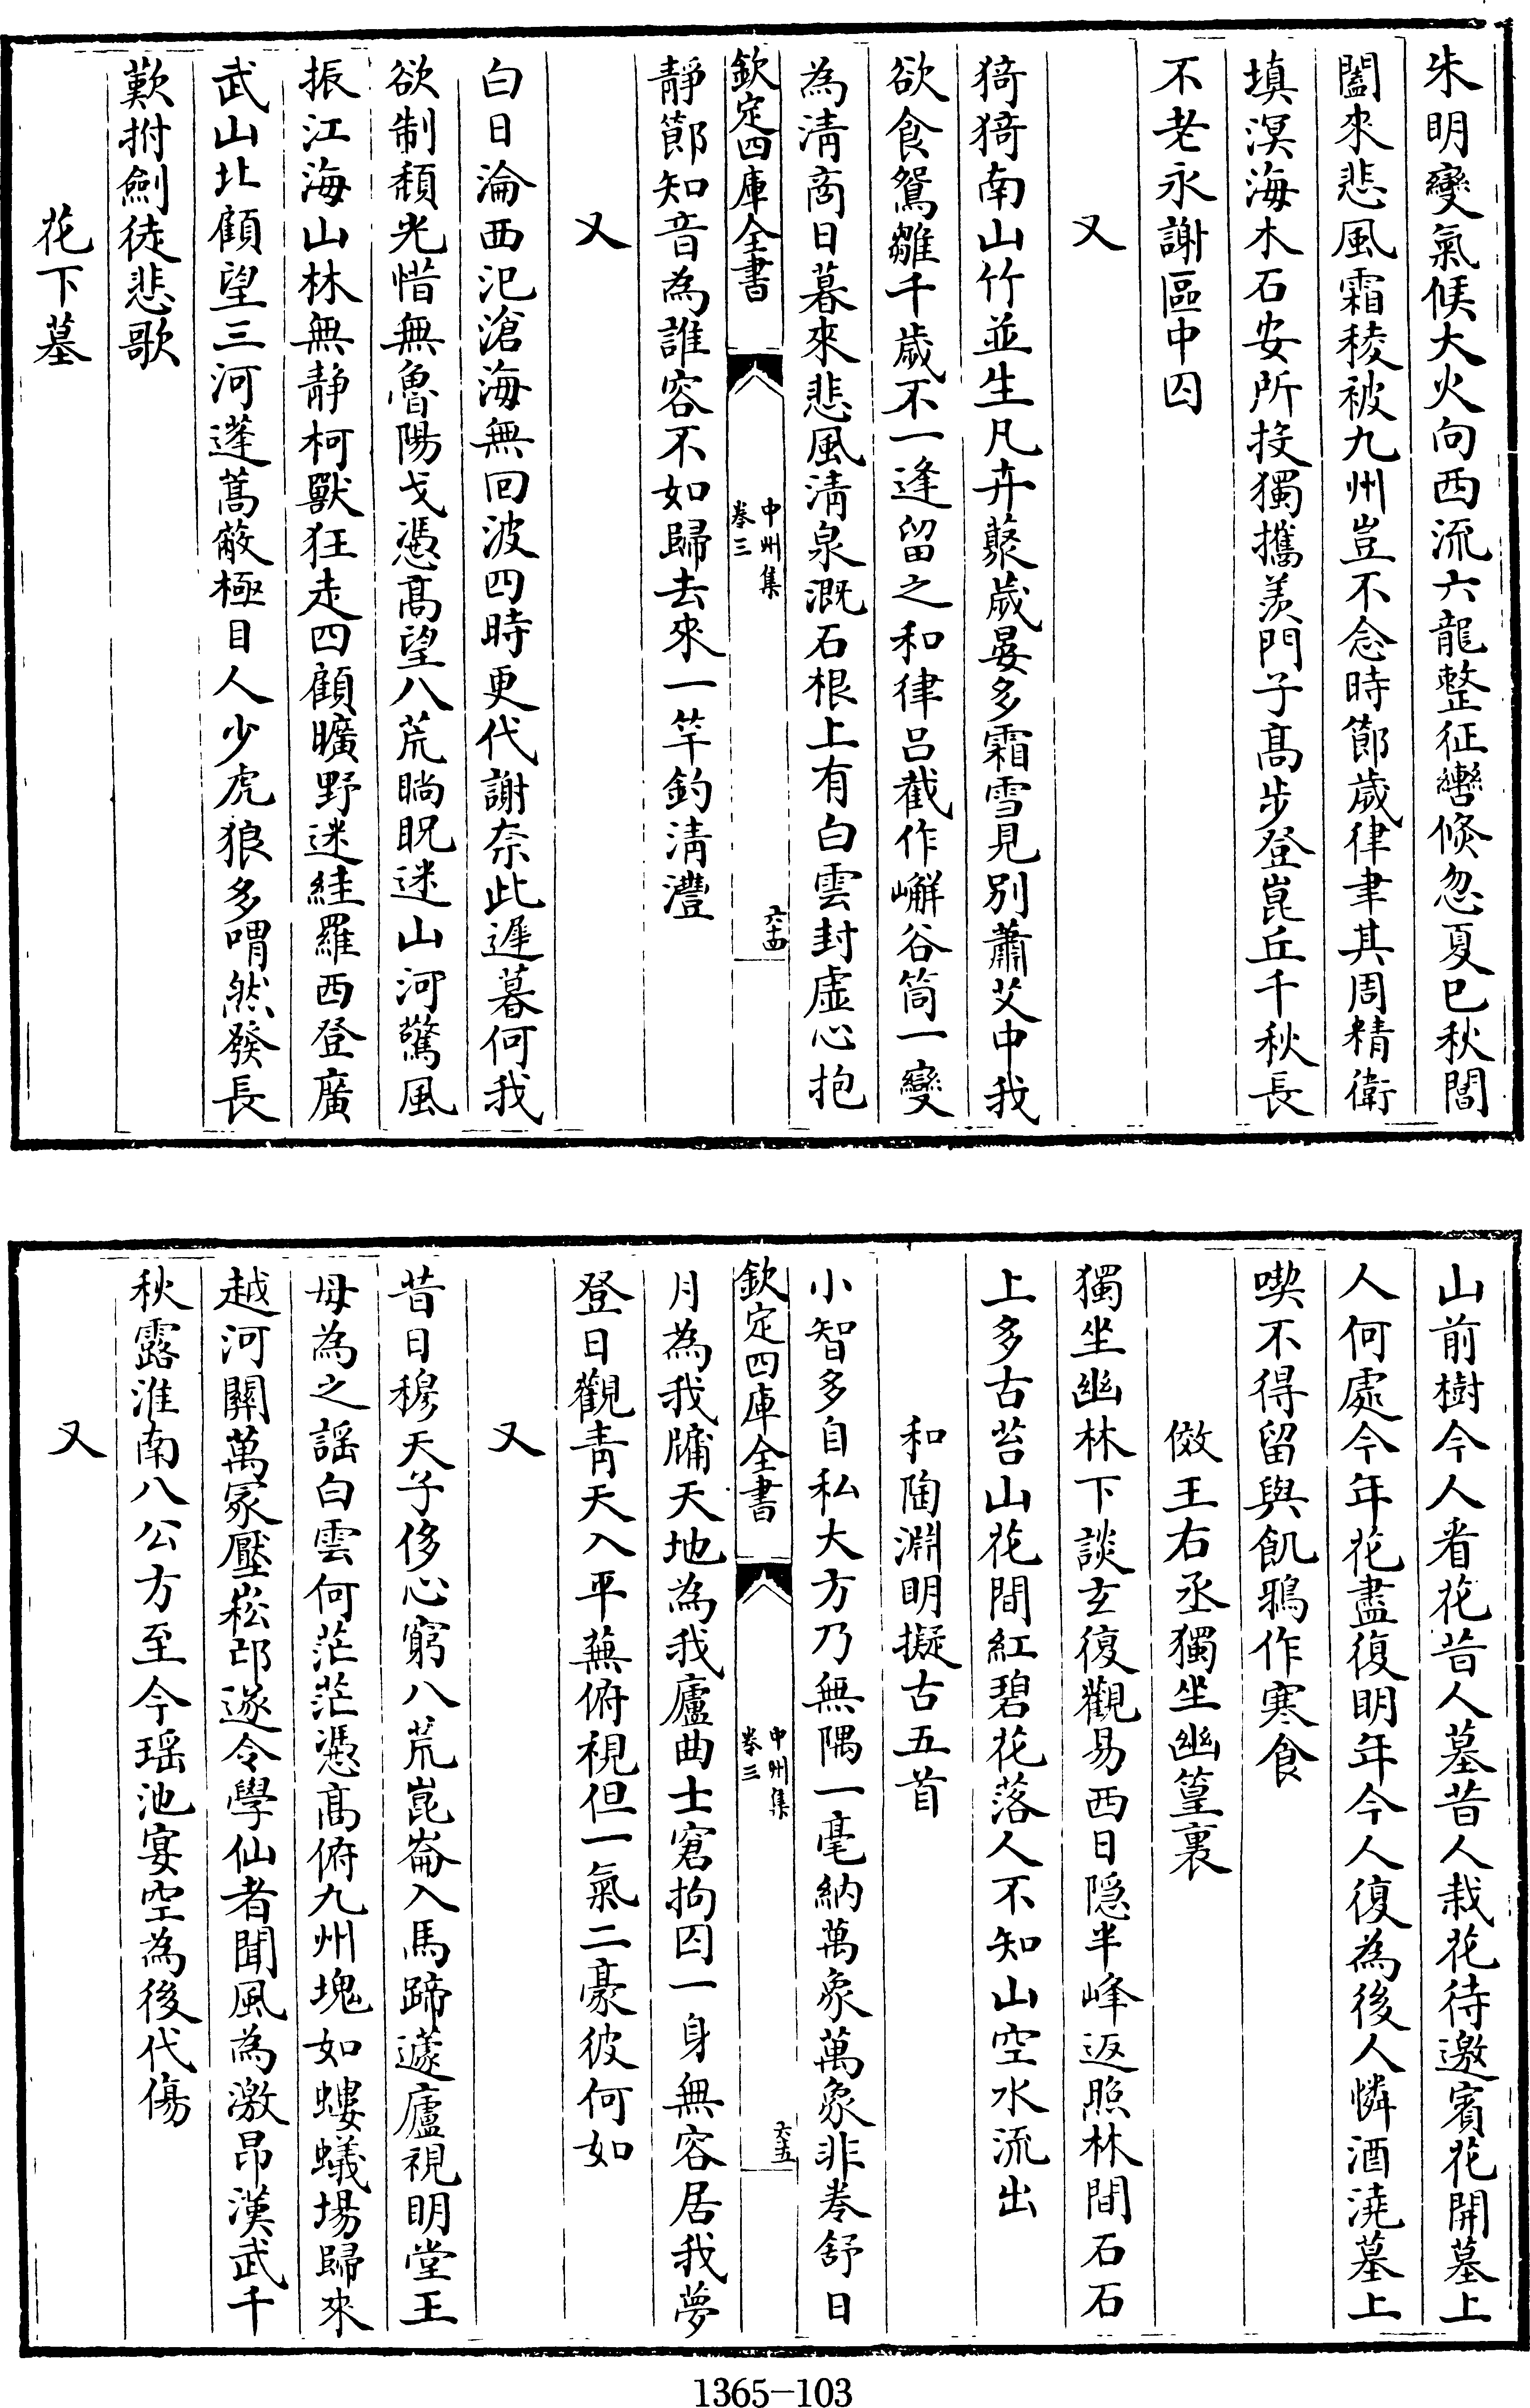 朱明變氣候大火向西流六龍整征轡倐忽夏已秋閶
闔來悲風霜稜被九州豈不念時節歲律聿其周精衛
填溟海木石安所投獨攜羨門子髙步登崑丘千秋長
不老永謝區中囚
又
猗猗南山竹並生凡卉藂歲晏多霜雪見别蕭艾中我
欲食鴛雛千歲不一逢留之和律吕截作嶰谷筒一變
為清商日暮來悲風清泉溉石根上有白雲封虚心抱
欽定四庫全書
中州集
卷三
六十四
靜節知音為誰容不如歸去來一竿釣清灃
又
白日淪西汜滄海無回波四時更代謝奈此遲暮何我
欲制頽光惜無魯陽戈憑髙望八荒眺睨迷山河驚風
振江海山林無靜柯獸狂走四顧曠野迷絓羅西登廣
武山北顧望三河蓬蒿蔽極目人少虎狼多喟然發長
歎拊劍徒悲歌
花下墓
山前樹今人看花昔人墓昔人栽花待邀賓花開墓上
人何處今年花盡復明年今人復為後人憐酒澆墓上
喫不得留與飢鴉作寒食
傚王右丞獨坐幽篁裏
獨坐幽林下談玄復觀易西日隠半峰返照林間石石
上多古苔山花間紅碧花落人不知山空水流出
和陶淵明擬古五首
小智多自私大方乃無隅一毫納萬象萬象非卷舒日
欽定四庫全書
中州集
卷三
六十五
月為我牖天地為我廬曲士窘拘囚一身無容居我夢
登日觀青天入平蕪俯視但一氣二豪彼何如
又
昔日穆天子侈心窮八荒崑崙入馬蹄蘧廬視明堂王
母為之謡白雲何茫茫憑髙俯九州塊如螻蟻場歸來
越河闗萬冢壓崧邙遂令學仙者聞風為激昂漢武千
秋露淮南八公方至今瑶池宴空為後代傷
又
1365-103